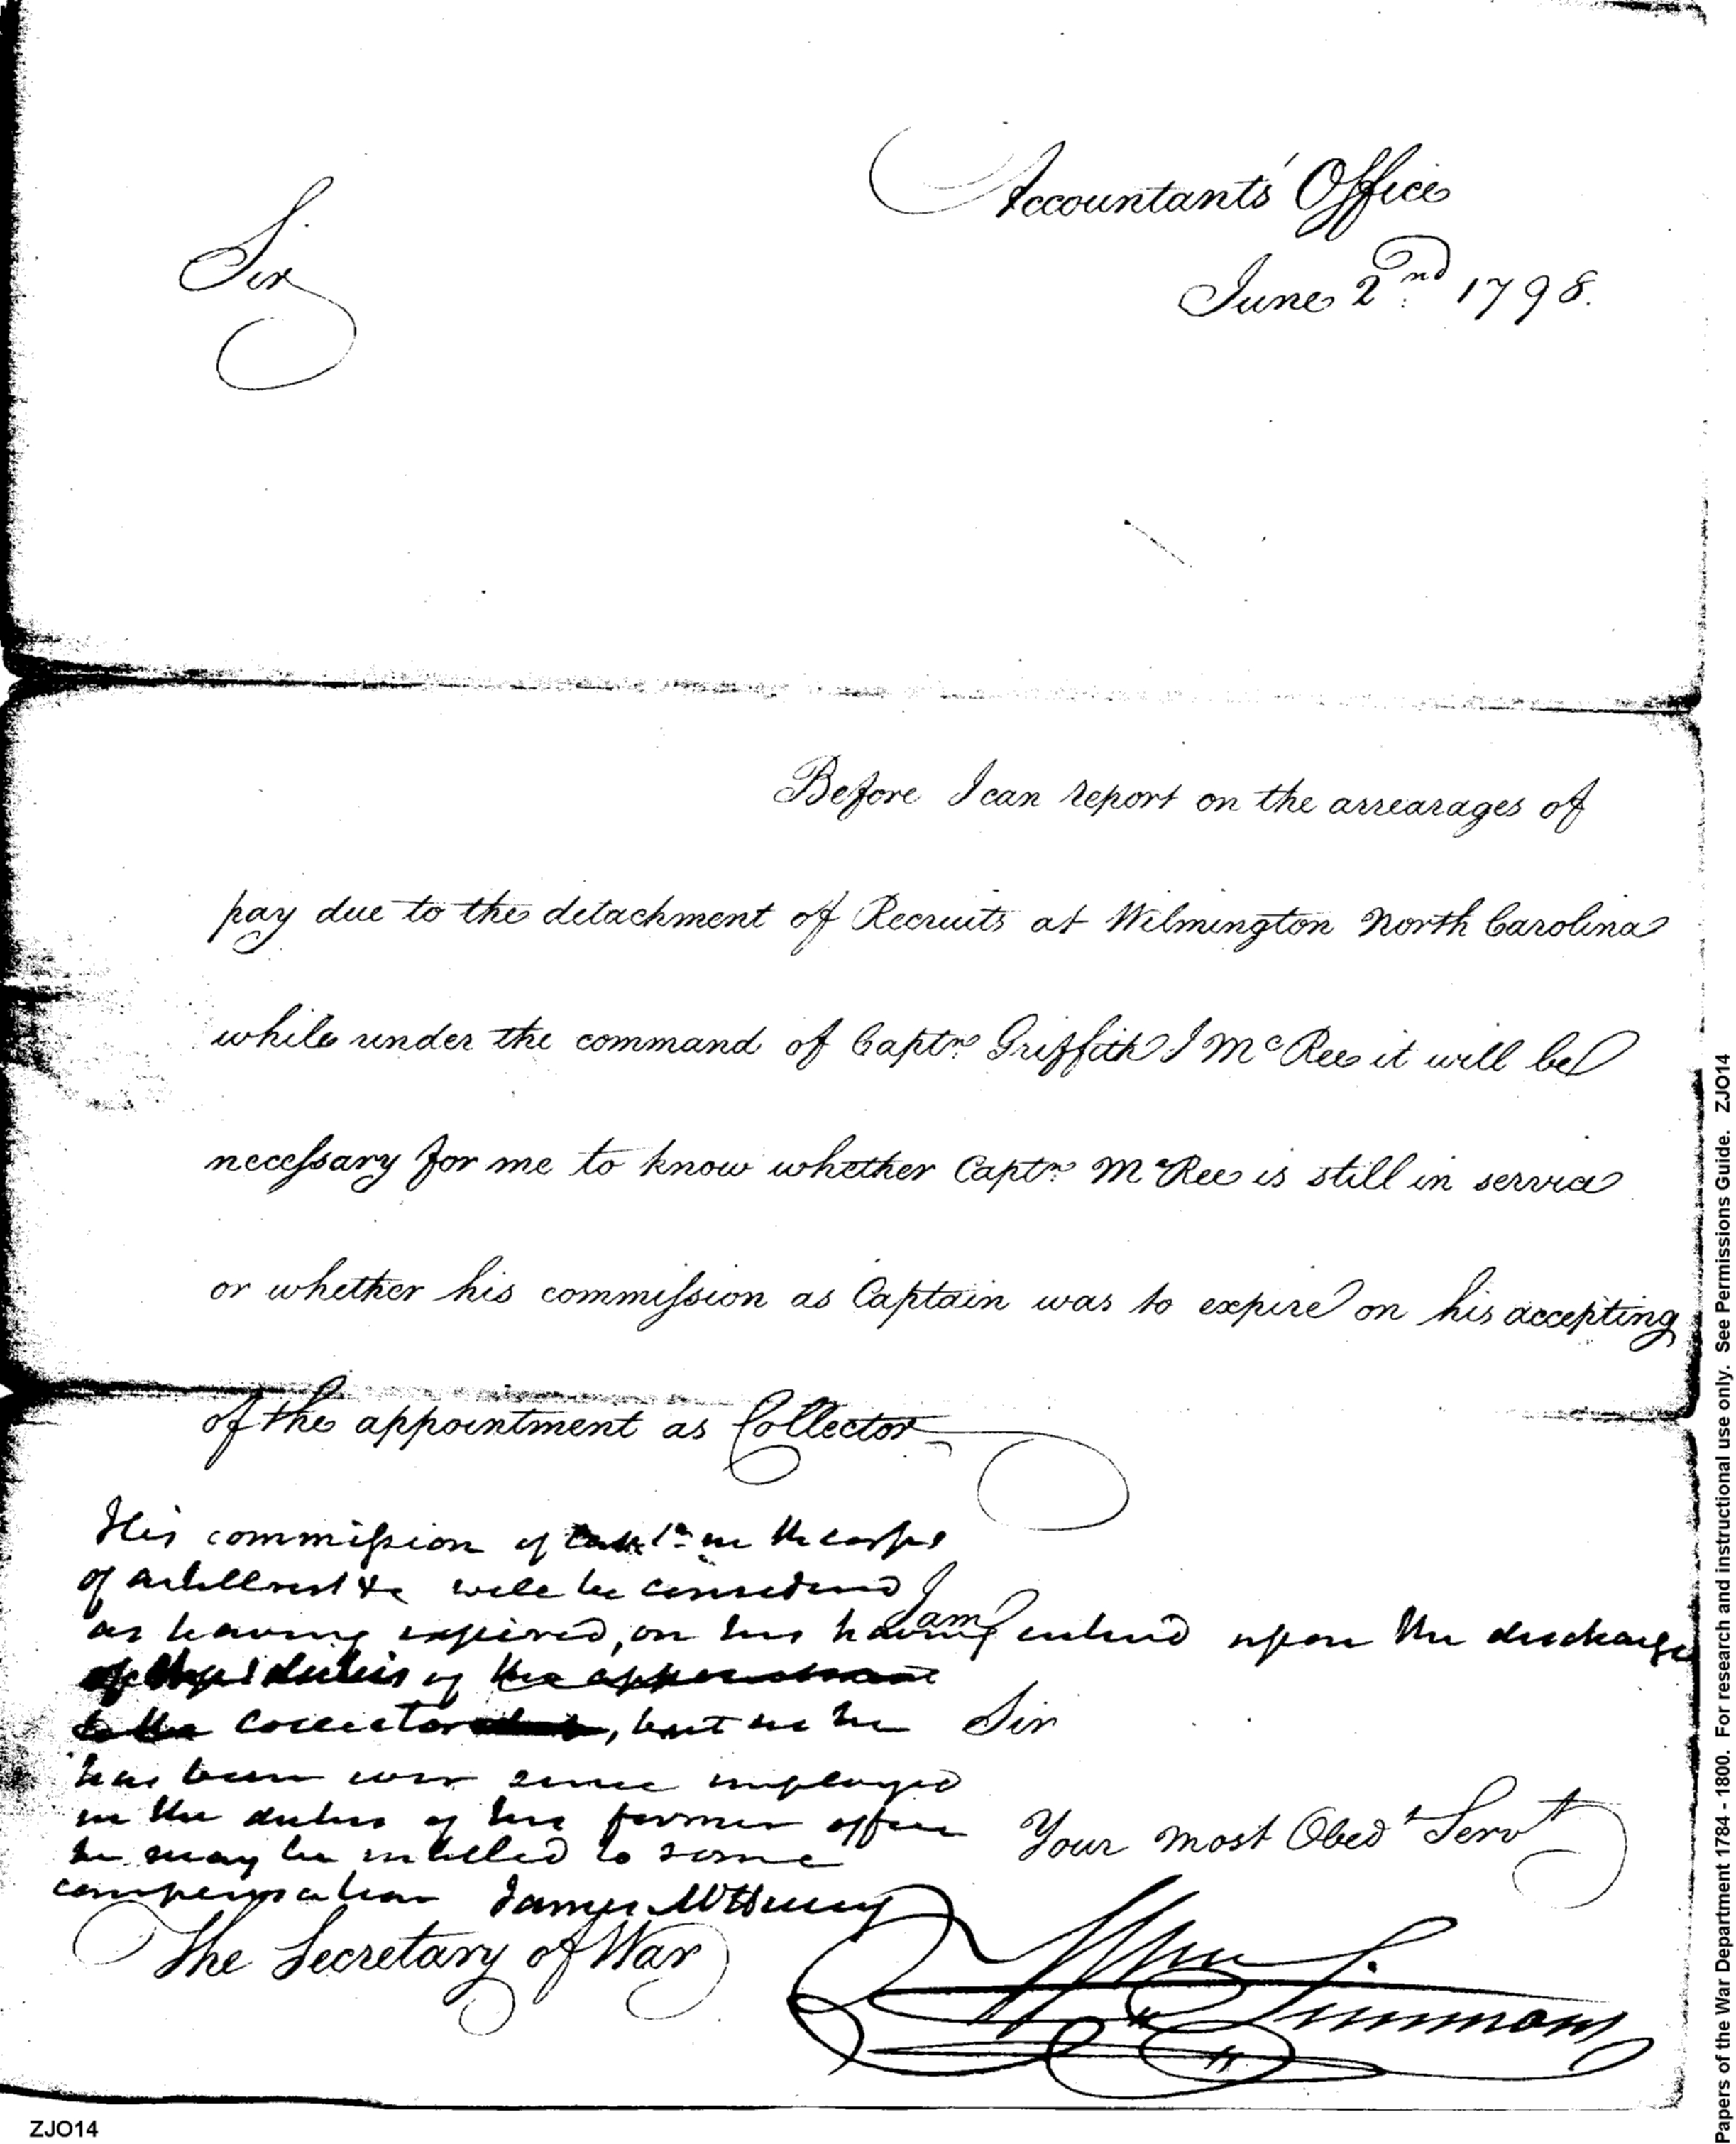 Accountants' Office
June 2nd 1798.
Sir
Before I can report on the arrearages of
pay due to the detachment of Recruits at Wilmington North Carolina
while under the command of Captn Griffith J McRee it will be
necessary for me to know whether Captn McRee is still in service
or whether his commission as Captain was to expire on his accepting
of the appointment as Collector
His commission of in the corps
of artillerist &c will be considered
as having expired, on his having entered upon the discharge
duties of the appointment
to the Collector, but as he
has been ever since employed
in the duties of his former office
he may be entitled to some
compensation James McHenry
I am
Sir
Your most Obedt Servt
Wm Simmons
The Secretary of War
ZJO14
Papers of the War Department 1784 - 1800. For research and instructional use only. See Permissions Guide. ZJO14